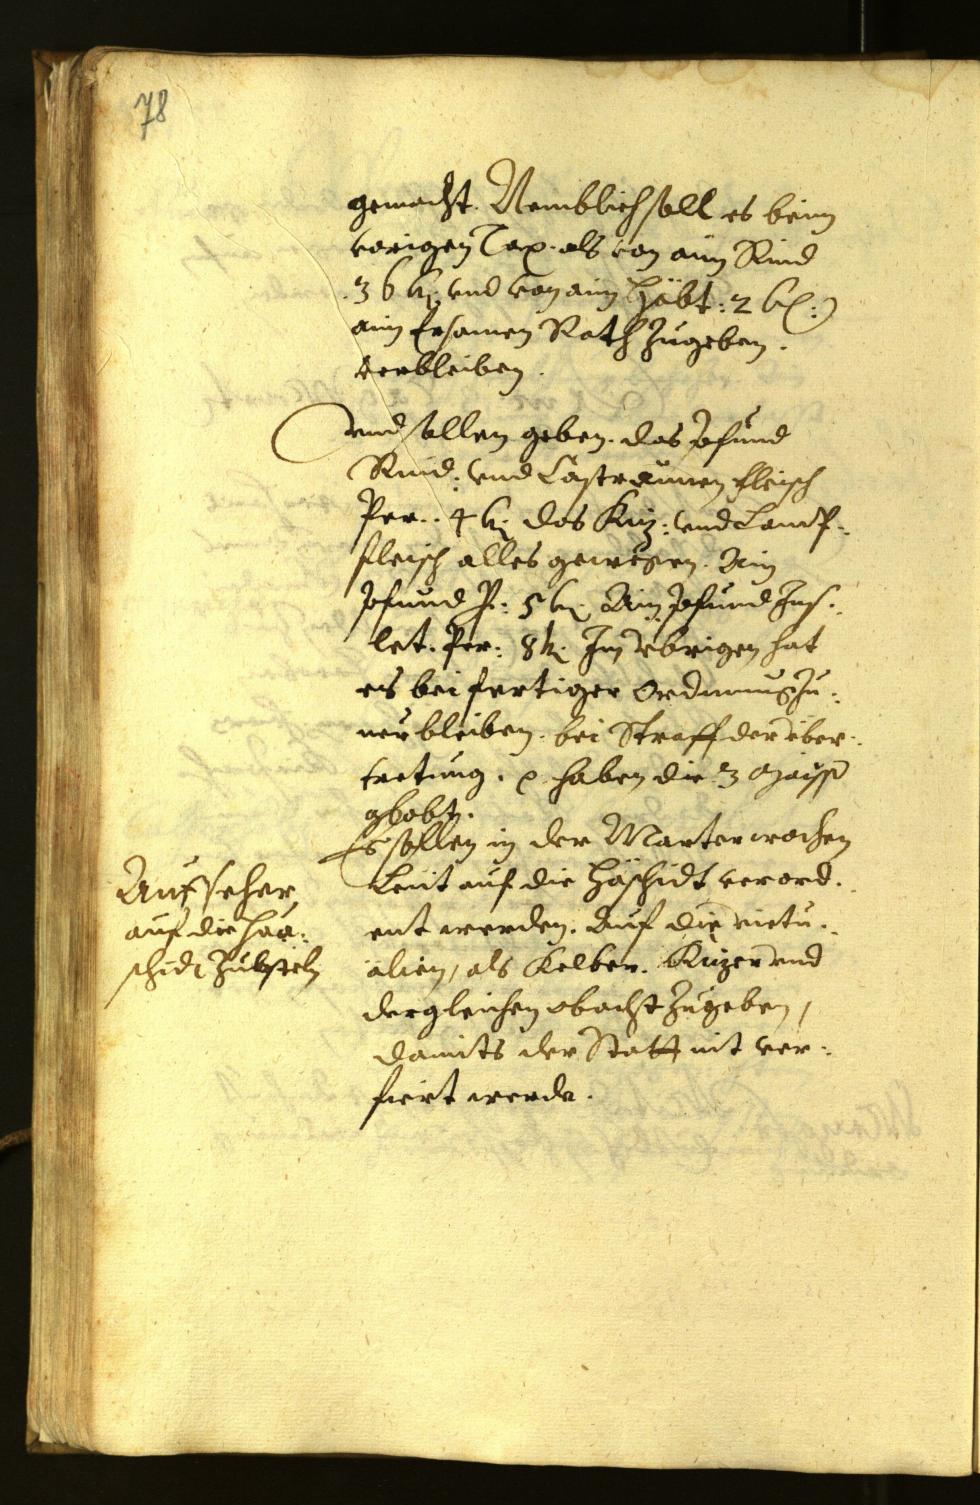 78
gemacht. Nemblich soll es beim
vorigen Tax. als von aim Rind
36 kr. und von aim Häbt: 2 kr:
aim Ersamen Rath zugeben.
verbleiben.
und sollen geben. das Pfund
Rind: und Castraunen fleisch
Per: 4 kr. das Kiz: und Lamp:
fleisch alles gewegen. Ain
Pfund P: 5 kr. Ain Pfund Ins:
let. Per: 8 kr. Im übrigen hat
es bei fertiger Ordnnung zu:
uerbleiben. bei Straff der über:
trettung. haben die 3
globt.
Es sollen in der Marterwochen
Leüt auf die Häschidt verord:
ent werden. Auf die victu:
alien, als Kelber. Kizer und
dergleichen obacht zugeben,
damits der Statt nit ver:
fiert werde.
Aufseher
auf die Haa:
schidt zubsteln